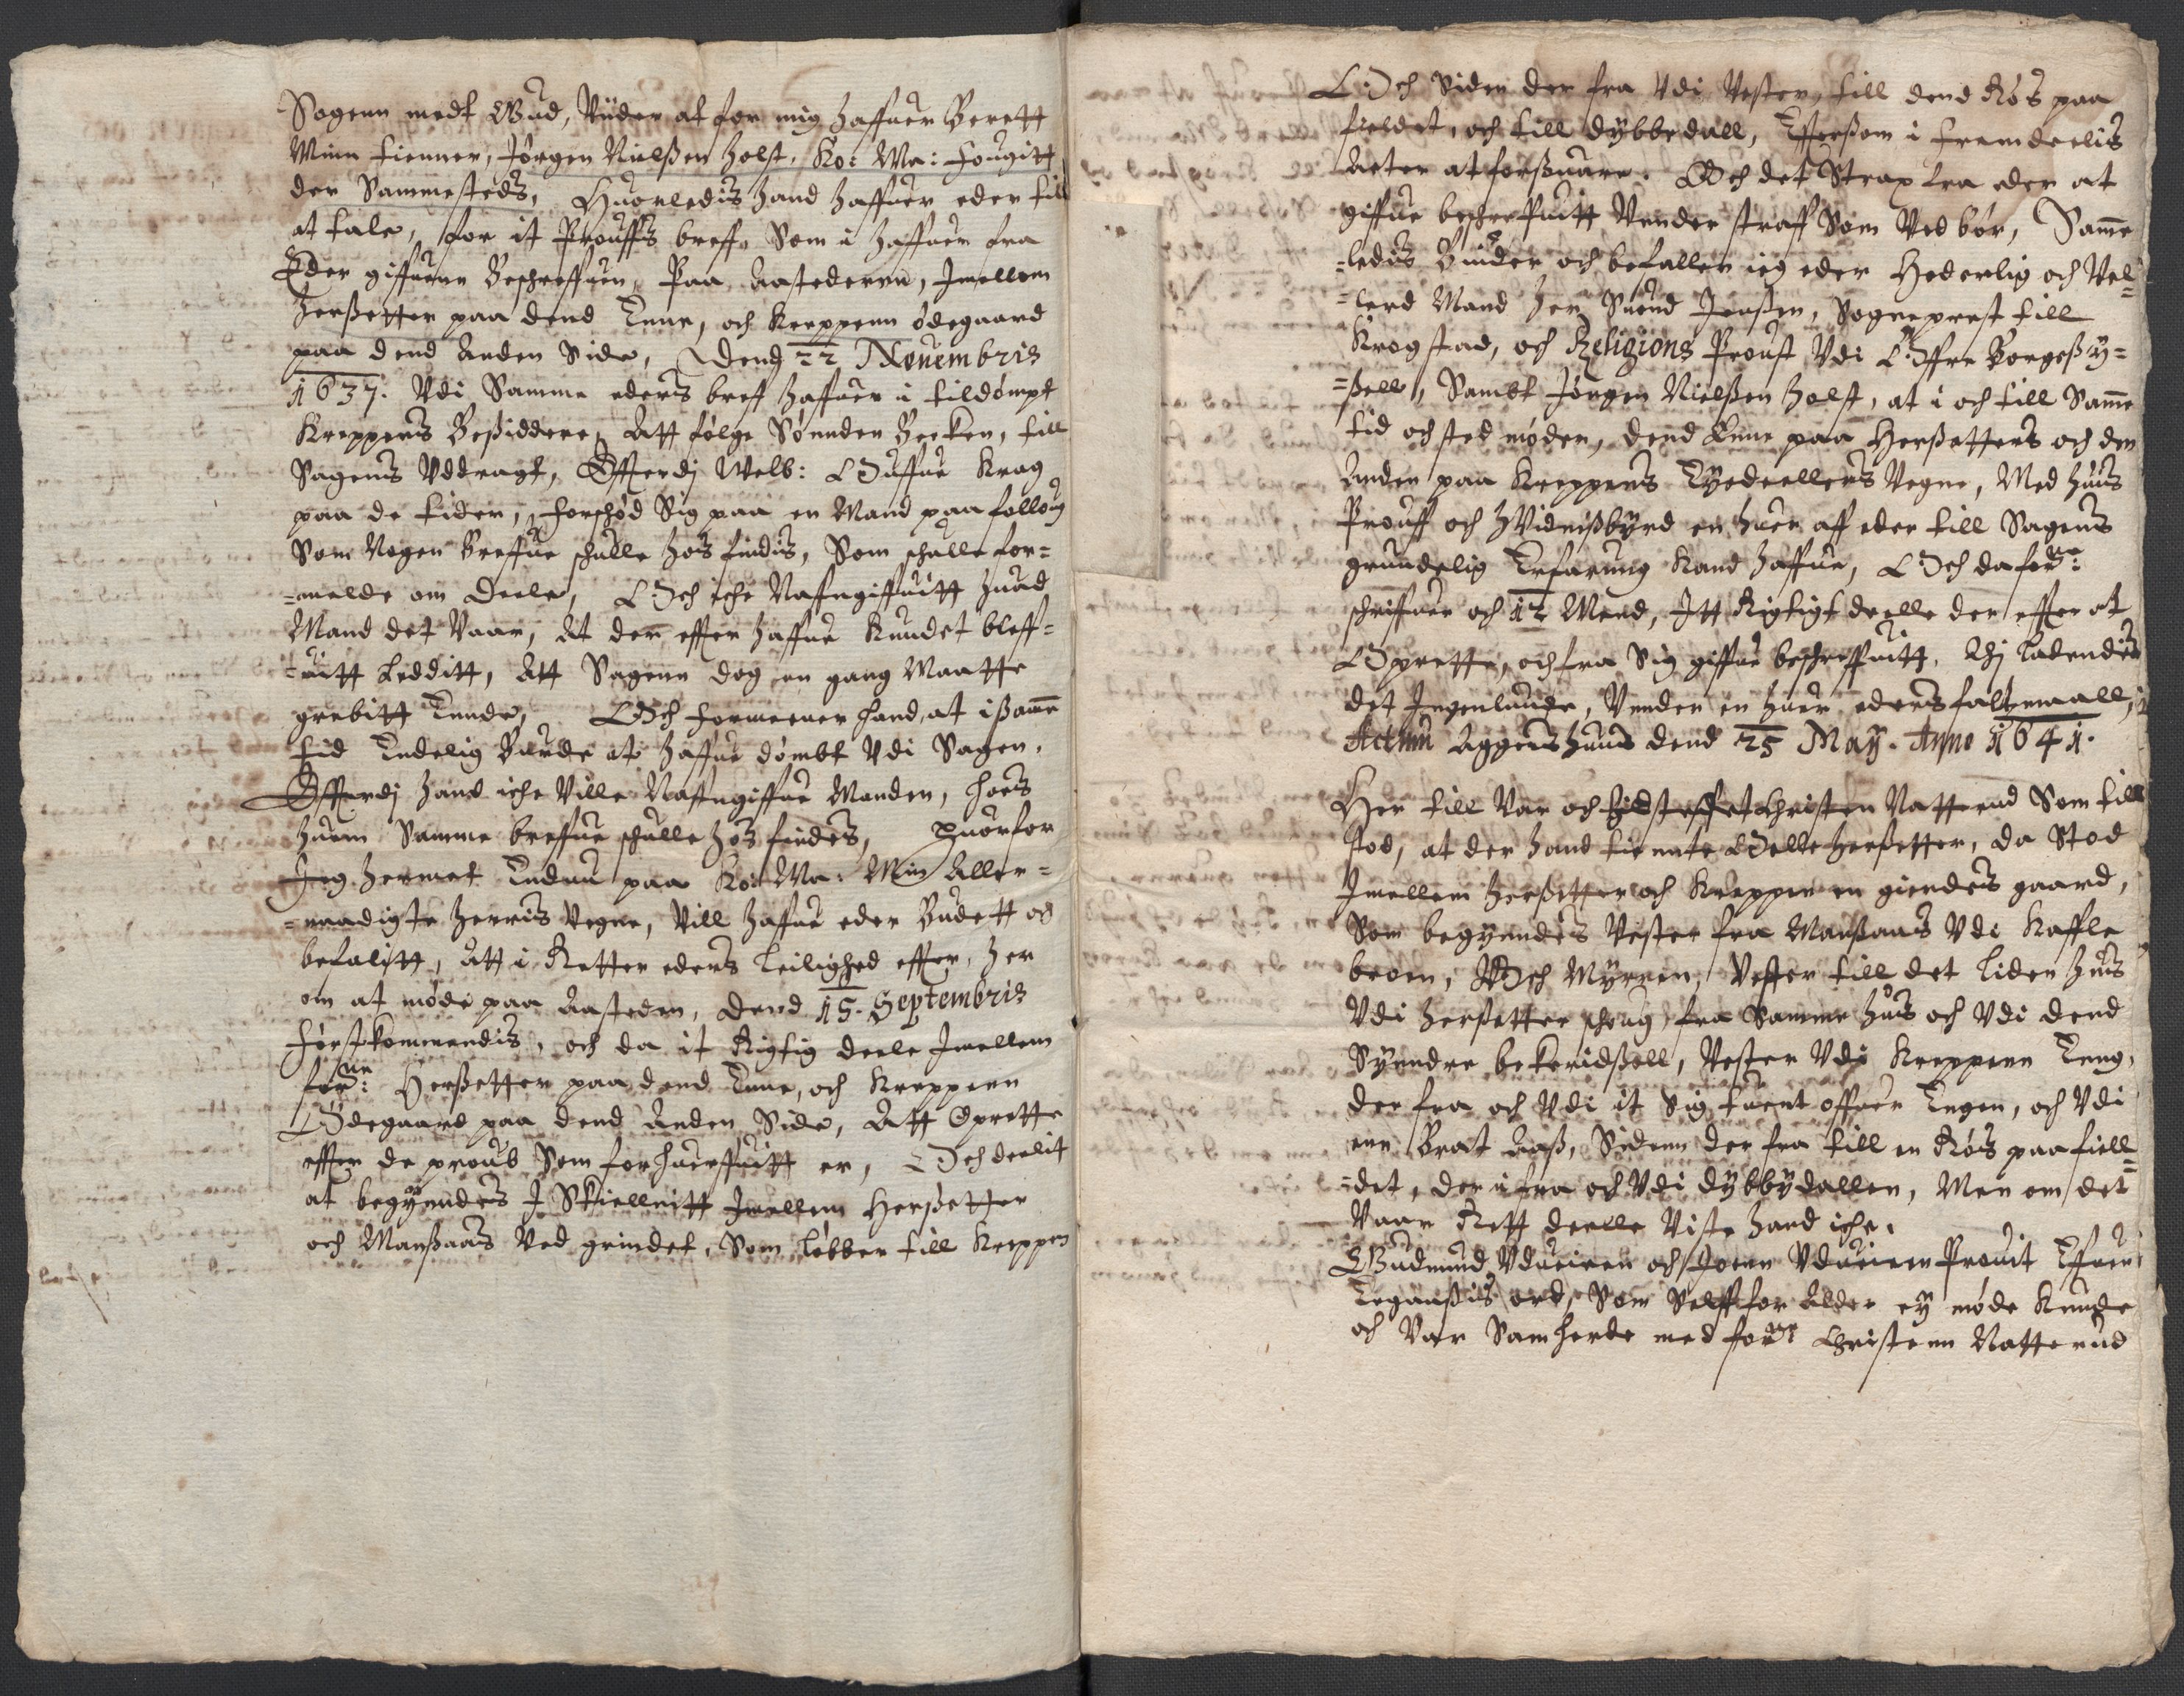 Sogenn medt Gud, Viider at for mig haffuer Berett
Minn tienner, Jørgen Nielßen Holst, Ko: Ma: Fougitt
der Sammesteds, Huorledis hand haffuer eder till
at tale, for it Prouffs breff, Som i haffuer fra
Eder giffuenn Beschreffuen, Paa Aastederne, Imellom
Herßetter paa dend Enne, och Kreppenn ødegaard
paa dend Anden Side, Dend 22 Nouembris
1637. Vdi Samme eders breff haffuer i tildømpt
Kreppens Beßiddere, Att følge Sønnder Becken, till
Sagens Vddragt, Effterdj Welb: Ouffue Krag
paa de tider, forschød Sig paa en Mand paa folloug
Som Nogen Breffue schulle hos findis, Som schulle for=
=melde om Deele, Och iche Naffngiffuitt huad
Mand det Vaar, At der effter haffue Kundet bleff=
=uitt Ledditt, Att Sagenn dog en gang Maatte
grebitt Ennde, Och formeener hand, at i ßamme
tid Endelig Burde at haffue dømbt Vdi Sagen,
Effterdj hand iche Ville Naffngiffue Manden, hoes
huem Samme breffue schulle hos findes, Huorfor
Jeg hermet Endnu paa Ko: Ma: Min Aller=
=naadigste Herris Vegne, Vill haffue eder Budett og
befalitt, Att i Retter eders Leilighed effter, her
om at møde paa Aasteden, Dend 15. Septembris
førstkommendis, och da it Rigtig deele Imellem
forne: Herßetter paa dend Enne, och Kreppenn
Ødegaard paa dend Anden Side, Att Oprette
effter de proub Som forhuerffuitt er, Och deelit
at begynndes I Skiellnitt Imellem Herßetter
och Manßaas Ved grindet, Som løbber till Kreppen
Och Siden der fra Vdi Vester, till dend Røs paa
fieldet, och till dybbedall, Efftersom i fremdeelis
Acter at forßuare. Och det Strax fra eder at
giffue beschreffuitt Vnnder straff Som Ved bør, Samme
=ledis Biuder och befaller ieg eder Hederlig och Vel=
=lerd Mand Her Suend Jenßen, Sogneprest till
Krogstad, och Religions Proust Vdi Øffre Borgeßy=
=ßell, Sambt Jørgen Nielßen Holst, at i och till Samme
tid och sted møder, dend Enne paa Herßetters och den
Anden paa Kreppens Eyedeellers Vegne, Med huis
Prouff och Vidnißbyrd en huer aff eder till Sagens
grundelig Erfarung kand haffue, Och da forne:
schriffuer och 12 Mend, Itt Rigtigt deelle der effter at
Oprette, och fra Sig giffue beschreffuitt, Ehj ladendis
det Ingenlunde, Vnnder en huer eders faltemaall,
Actum Aggershuus dend 25 May. Anno 1641.
Her till Var och tilsteffnet Christen Natterud Som till
stod, at der hand tiennte Wolle Herßetter, da Stod
Imellem Herßetter och Kreppen en gierdes gaard,
Som begynndes Vester fra Manßaas Vdi Kaffle
broen, Och Myrren, Vester till det liden huus
Vdi Herßetter schoug, fra Samme huus och Vdi dend
Synndre bekeridßell, Vester Vdi Kreppenn Eeng,
der fra och Vdi it Sig tuert offuer Engen, och Vdi
enn Brat Aaß, Sidenn der fra till en Røs paa fiell=
=det, der ifra och Vdi dybbydallen, Men om det
Vaar Rett deelle Viste hand iche.
Gudmund Vdueien och Joenn Vdueienn Prouit Effuen
Togaaßis ord, Som Selff for Alder ey møde Kunde
och Var Samherde med forne Christenn Natterud